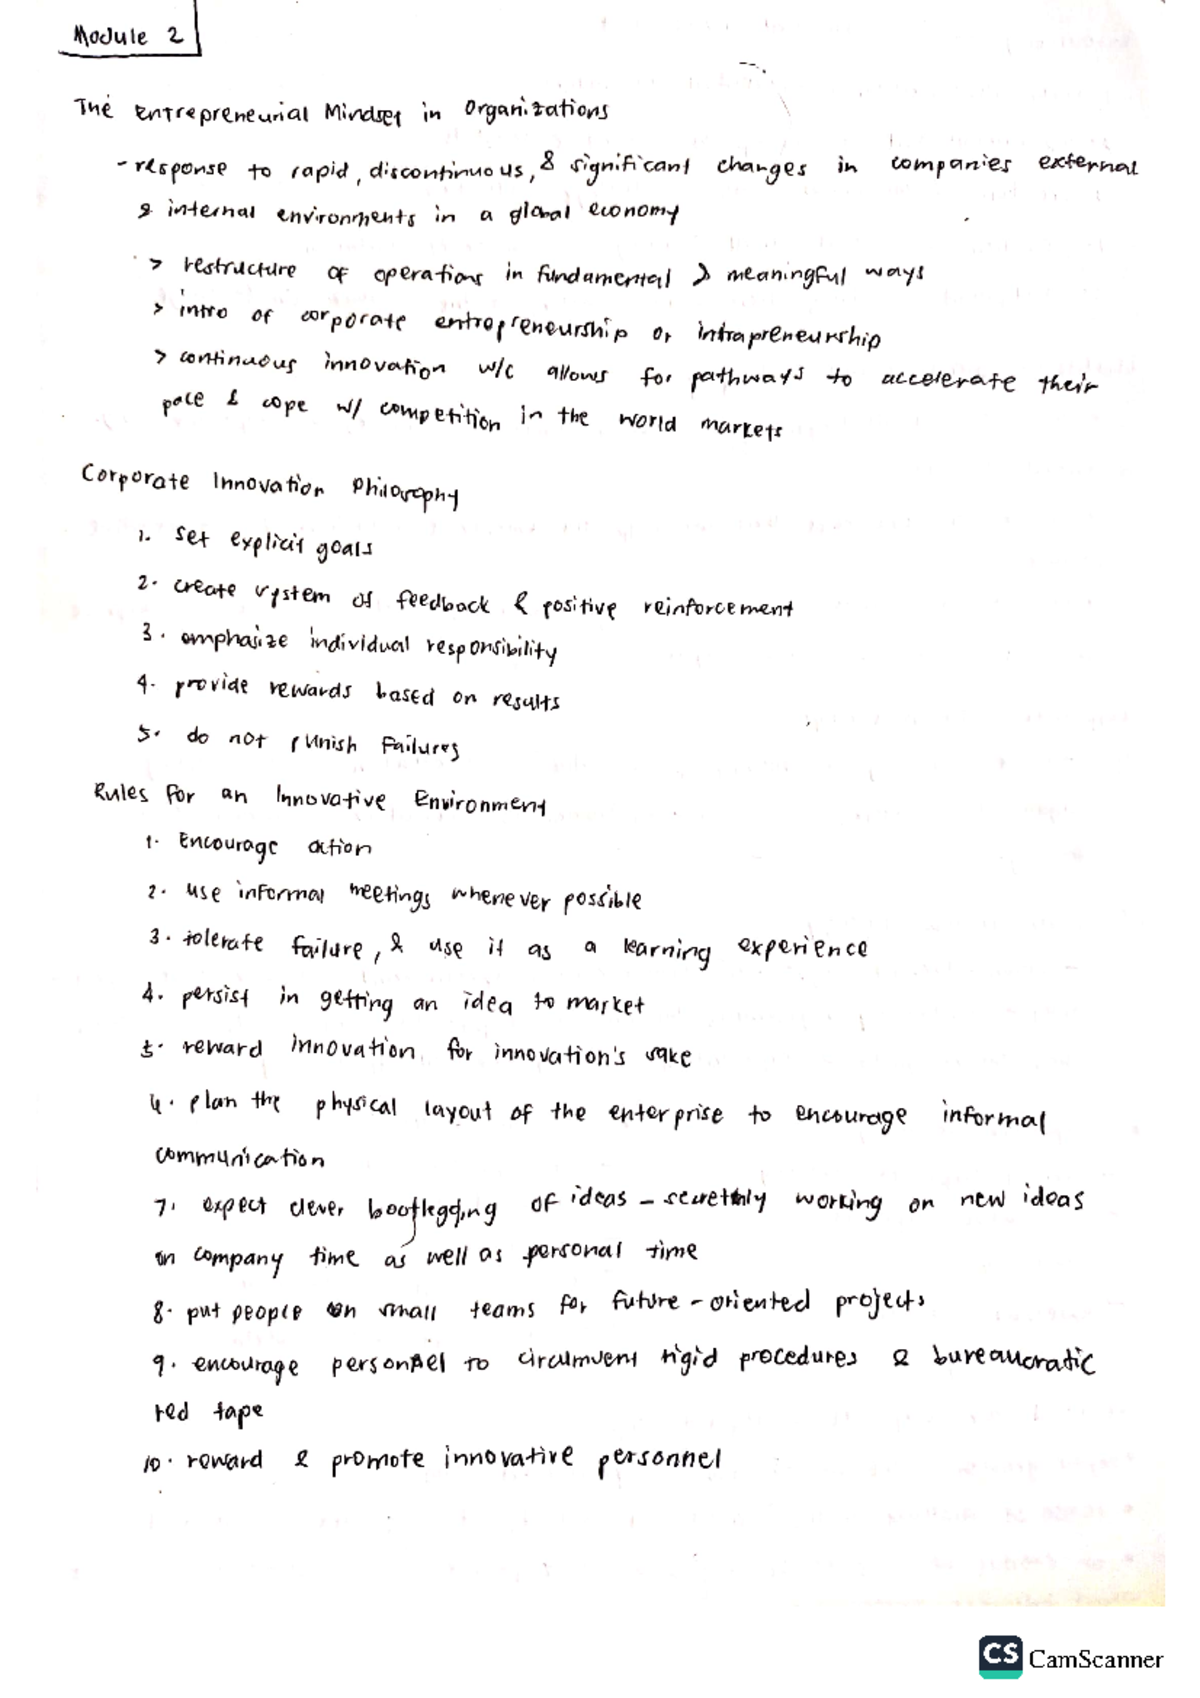 Module 2
The Entrepreneurial Mindset in Organizations
- response to rapid, discontinuous, & significant changes in companies external
& internal environments in a global economy
> restructure of operations in fundamental & meaningful ways
> intro of corporate entrepreneurship or intrapreneurship
> continuous innovation w/c allows for pathways to accelerate their
pace & cope w/ competition in the world markets
Corporate Innovation Philosophy
1. set explicit goals
2. create system of feedback & positive reinforcement
3. emphasize individual responsibility
4. provide rewards based on results
5. do not punish failures
Rules for an Innovative Environment
1. Encourage action
2. use informal meetings whenever possible
3. tolerate failure, & use it as a learning experience
4. persist in getting an idea to market
5. reward innovation for innovation's sake
6. plan the physical layout of the enterprise to encourage informal
communication
7. expect clever bootlegging of ideas - secrethly working on new ideas
on company time as well as personal time
8. put people on small teams for future-oriented projects
9. encourage personnel to circumvent rigid procedures & bureaucratic
red tape
10. reward & promote innovative personnel
CS CamScanner